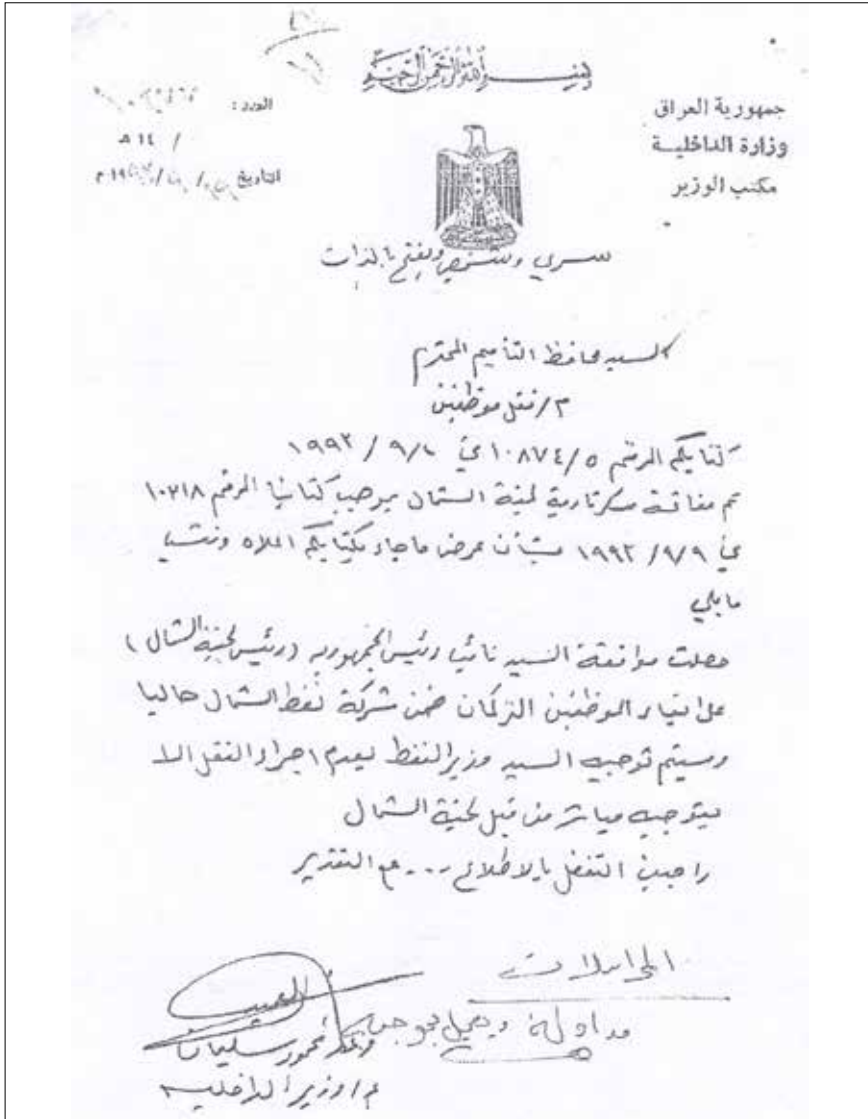 بسم الله الرحمن الرحيم
جمهورية العراق
وزارة الداخلية
مكتب الوزير
العدد :
/ ١٤ هـ
التاريخ / / ١٩ م
سري وشخصي ويفتح بالذات
السيد محافظ التأميم المحترم
م/ نقل موظفين
كتابكم المرقم ١٠٨٧٤/٥ في ١٩٩٢/٩/
تم مفاتحة سكرتارية لجنة الشمال بموجب كتابنا المرقم ١٠٢١٨
في ١٩٩٢/٩/٩ بشأن عرض ما جاء بكتابكم اعلاه ونسب
مايلي
حصلت موافقة السيد نائب رئيس الجمهورية (رئيس لجنة الشمال)
على ابقاء الموظفين التركمان ضمن شركة نفط الشمال حاليا
وسيتم توجيه السيد وزير النفط بعدم اجراء النقل الا
بتوجيه مباشر من قبل لجنة الشمال
راجين التفضل بالاطلاع ... مع التقدير
مداولة ويعمل بموجبه
العميد
محمود سليمان
ع/ وزير الداخلية